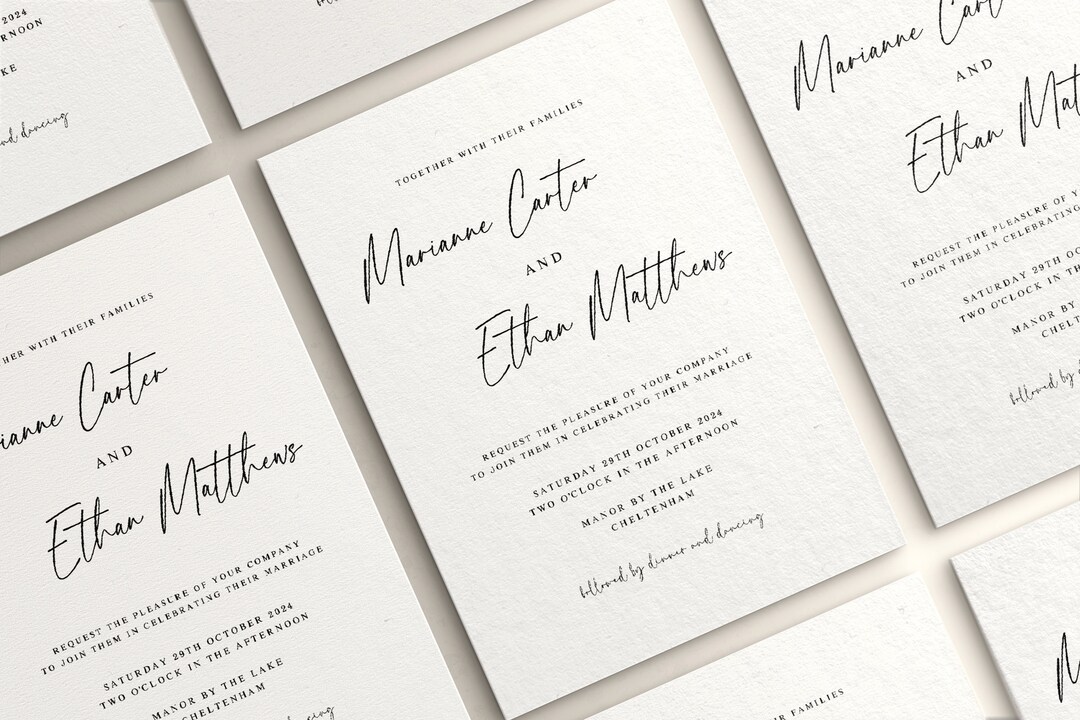 2024
RNOON
KE
nd dancing
TOGETHER WITH THEIR FAMILIES
Marianne Carter
AND
Ethan Matthews
REQUEST THE PLEASURE OF YOUR COMPANY
TO JOIN THEM IN CELEBRATING THEIR MARRIAGE
SATURDAY 29TH OCTOBER 2024
TWO O'CLOCK IN THE AFTERNOON
MANOR BY THE LAKE
CHELTENHAM
followed by dinner and dancing
Marianne Cart
AND
Ethan Mat
REQUEST THE PLEASURE OF Y
TO JOIN THEM IN CELEBRATING
SATURDAY 29TH OC
TWO O'CLOCK IN THE
MANOR BY
CHELT
followed by d
HER WITH THEIR FAMILIES
ianne Carter
AND
Ethan Matthews
REQUEST THE PLEASURE OF YOUR COMPANY
TO JOIN THEM IN CELEBRATING THEIR MARRIAGE
SATURDAY 29TH OCTOBER 2024
TWO O'CLOCK IN THE AFTERNOON
MANOR BY THE LAKE
CHELTENHAM
nd dancing
R FAMILIES
M